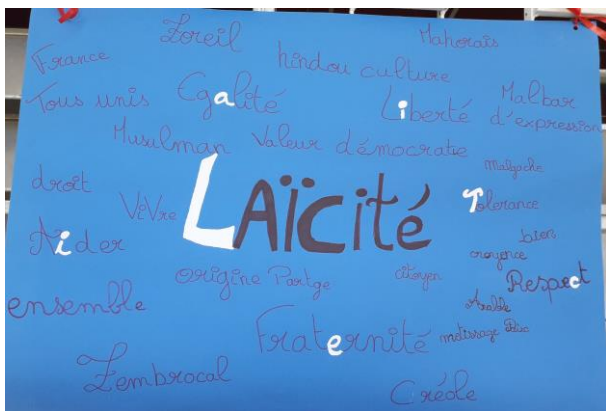 Zoreil Mahorais
France hindou culture
Tous unis Egalité Liberté Malbar
d'expression
Musulman Valeur démocratie
malgache
droit ViVre LAÏCité Tolerance
Aider bien
croyence
origine Partge citoyen Respect
ensemble Arabe
Fraternité métissage
Zembrocal Créole